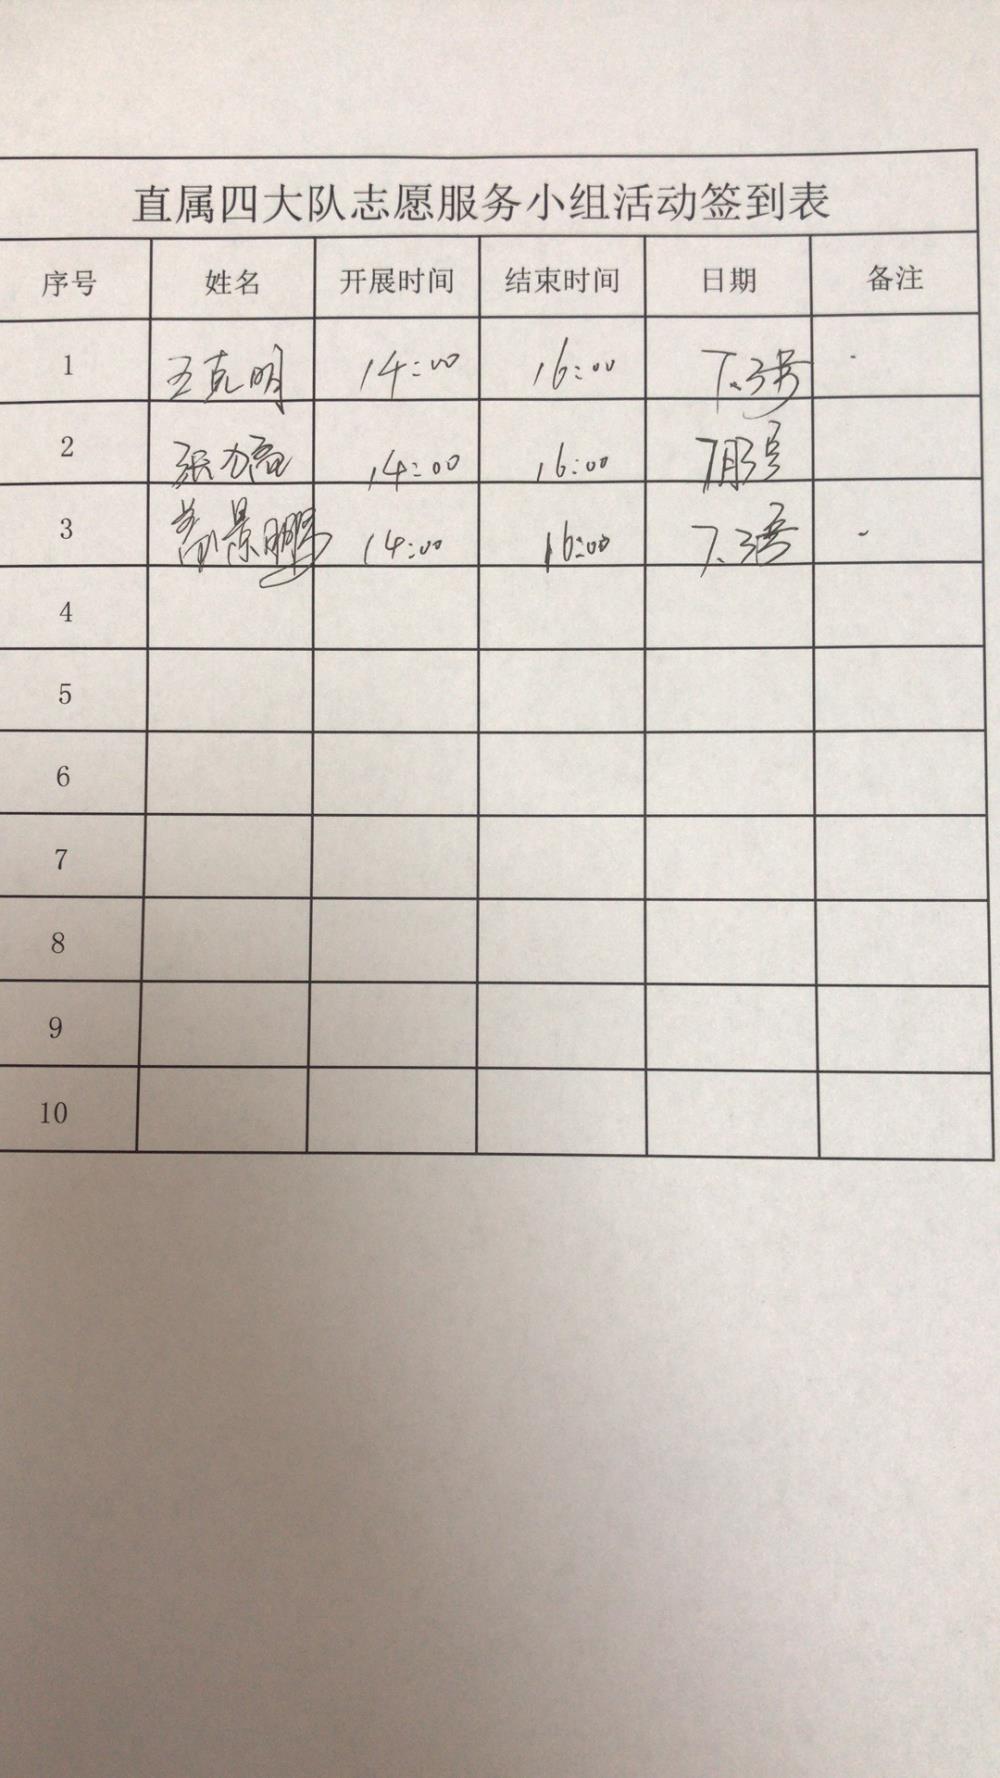 直属四大队志愿服务小组活动签到表
序号 姓名 开展时间 结束时间 日期 备注
1 王克明 14:00 16:00 7.3号
2 张力 14:00 16:00 7月3号
3 景鹏 14:00 16:00 7.3号
4
5
6
7
8
9
10